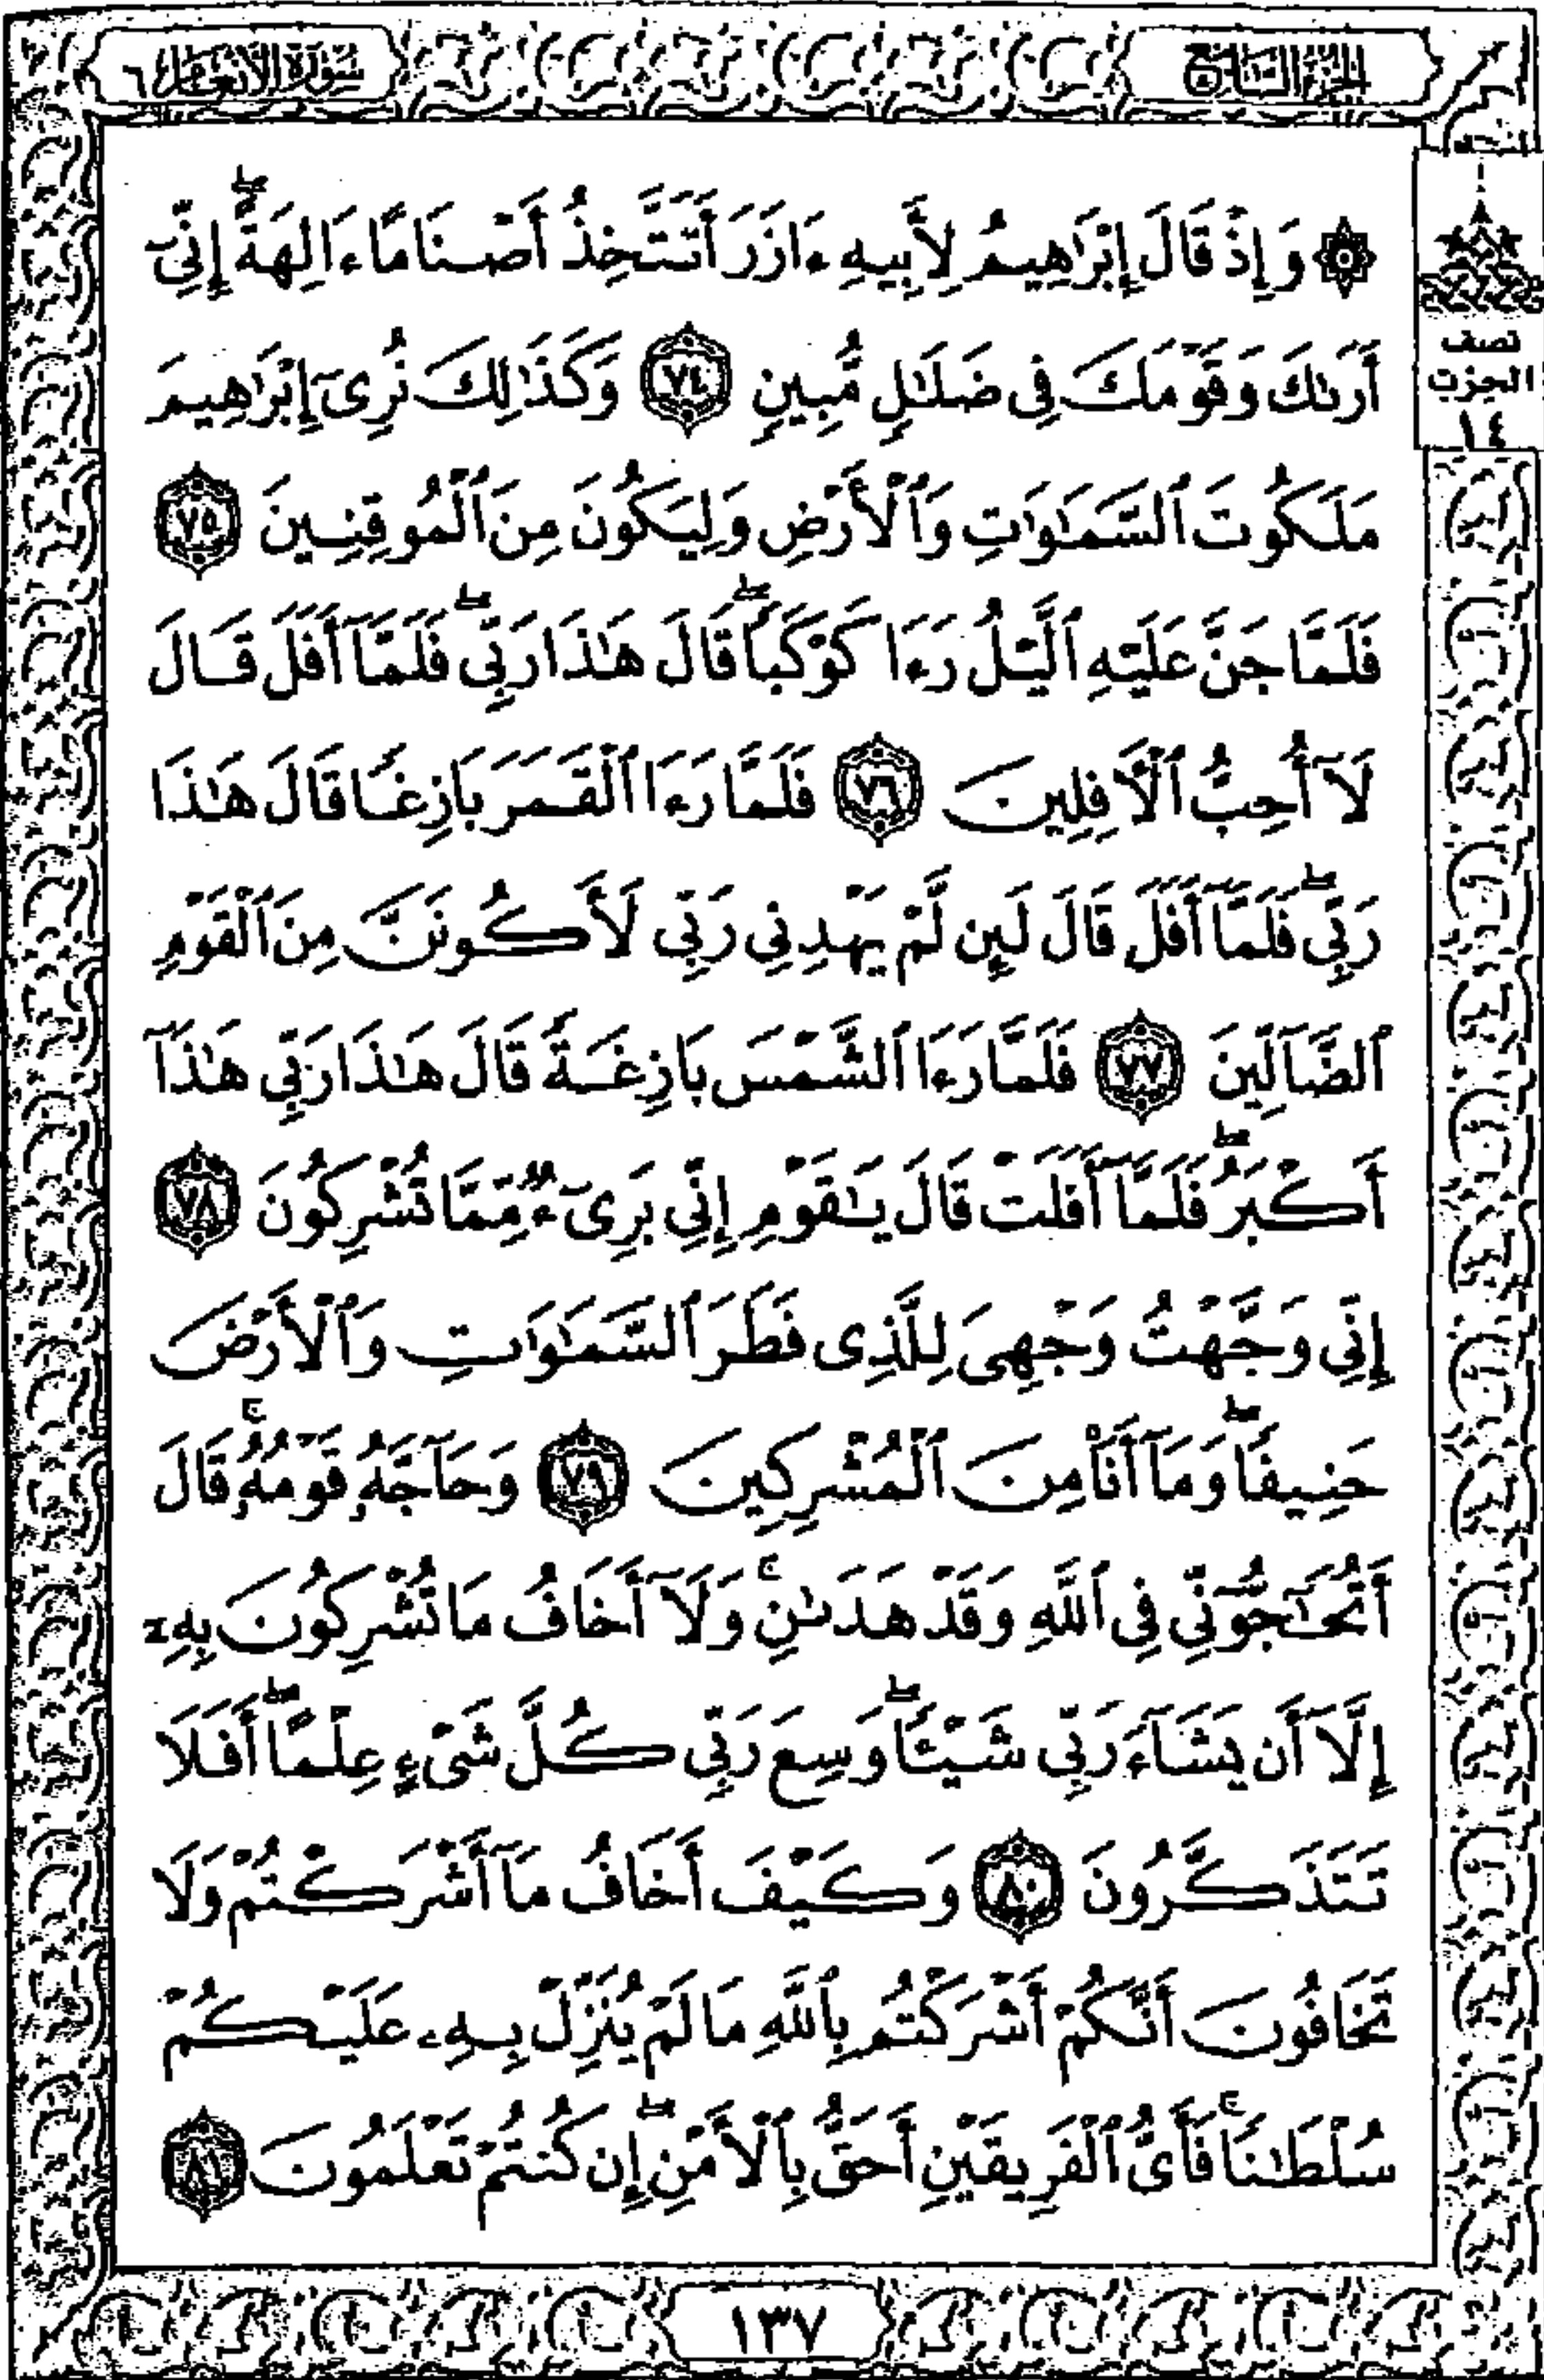 الجزء السابع
سورة الأنعام ٦
۞ وَإِذْ قَالَ إِبْرَٰهِيمُ لِأَبِيهِ ءَازَرَ أَتَتَّخِذُ أَصْنَامًا ءَالِهَةً ۖ إِنِّىٓ
أَرَىٰكَ وَقَوْمَكَ فِى ضَلَٰلٍ مُّبِينٍ ٧٤ وَكَذَٰلِكَ نُرِىٓ إِبْرَٰهِيمَ
مَلَكُوتَ ٱلسَّمَٰوَٰتِ وَٱلْأَرْضِ وَلِيَكُونَ مِنَ ٱلْمُوقِنِينَ ٧٥
فَلَمَّا جَنَّ عَلَيْهِ ٱلَّيْلُ رَءَا كَوْكَبًا ۖ قَالَ هَٰذَا رَبِّى ۖ فَلَمَّآ أَفَلَ قَالَ
لَآ أُحِبُّ ٱلْءَافِلِينَ ٧٦ فَلَمَّا رَءَا ٱلْقَمَرَ بَازِغًا قَالَ هَٰذَا
رَبِّى ۖ فَلَمَّآ أَفَلَ قَالَ لَئِن لَّمْ يَهْدِنِى رَبِّى لَأَكُونَنَّ مِنَ ٱلْقَوْمِ
ٱلضَّآلِّينَ ٧٧ فَلَمَّا رَءَا ٱلشَّمْسَ بَازِغَةً قَالَ هَٰذَا رَبِّى هَٰذَآ
أَكْبَرُ ۖ فَلَمَّآ أَفَلَتْ قَالَ يَٰقَوْمِ إِنِّى بَرِىٓءٌ مِّمَّا تُشْرِكُونَ ٧٨
إِنِّى وَجَّهْتُ وَجْهِىَ لِلَّذِى فَطَرَ ٱلسَّمَٰوَٰتِ وَٱلْأَرْضَ
حَنِيفًا ۖ وَمَآ أَنَا۠ مِنَ ٱلْمُشْرِكِينَ ٧٩ وَحَآجَّهُۥ قَوْمُهُۥ ۚ قَالَ
أَتُحَٰٓجُّوٓنِّى فِى ٱللَّهِ وَقَدْ هَدَىٰنِ ۚ وَلَآ أَخَافُ مَا تُشْرِكُونَ بِهِۦٓ
إِلَّآ أَن يَشَآءَ رَبِّى شَيْـًٔا ۗ وَسِعَ رَبِّى كُلَّ شَىْءٍ عِلْمًا ۗ أَفَلَا
تَتَذَكَّرُونَ ٨٠ وَكَيْفَ أَخَافُ مَآ أَشْرَكْتُمْ وَلَا
تَخَافُونَ أَنَّكُمْ أَشْرَكْتُم بِٱللَّهِ مَا لَمْ يُنَزِّلْ بِهِۦ عَلَيْكُمْ
سُلْطَٰنًا ۚ فَأَىُّ ٱلْفَرِيقَيْنِ أَحَقُّ بِٱلْأَمْنِ ۖ إِن كُنتُمْ تَعْلَمُونَ ٨١
نصف
الحزب
١٤
١٣٧